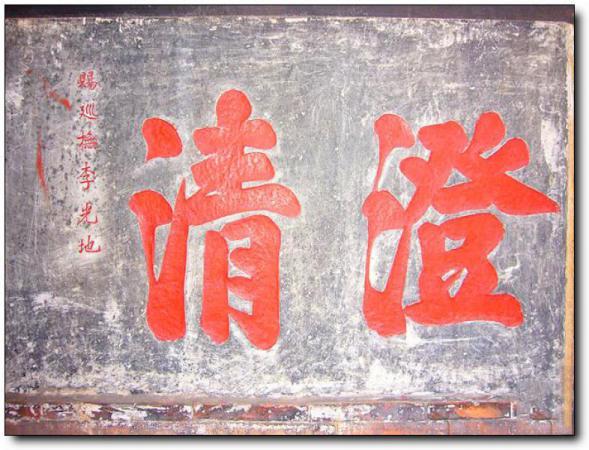 澄清
賜巡撫李光地